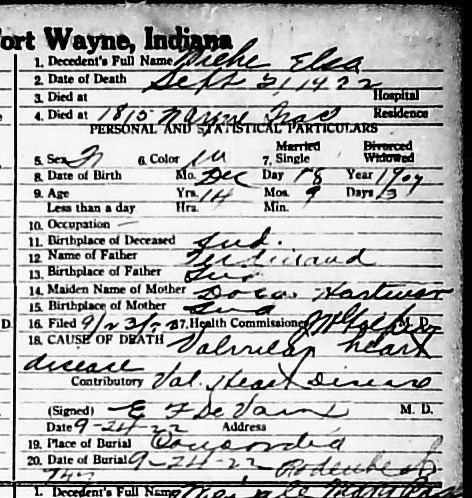 ort Wayne, Indiana
1. Decedent's Full Name Wiehe Elsa
2. Date of Death Sept 21, 1922
3. Died at Hospital
4. Died at 1815 Residence
PERSONAL AND STATISTICAL PARTICULARS
Married Divorced
5. Sex F 6. Color W 7. Single Widowed
8. Date of Birth Mo. Dec Day 18 Year 1907
9. Age Yrs. 14 Mos. 9 Days 3
Less than a day Hrs. Min.
10. Occupation —
11. Birthplace of Deceased Ind.
12. Name of Father Ferdinand
13. Birthplace of Father Ind
14. Maiden Name of Mother Dora Hartman
15. Birthplace of Mother Ind
D. 16. Filed 9/23/22 17. Health Commissioner M. D.
18. CAUSE OF DEATH Valvular heart
disease
Contributory Val. Heart Disease
(Signed) E F M. D.
Date 9-24-22 Address
19. Place of Burial Concordia
20. Date of Burial 9-24-22
747
1. Decedent's Full Name